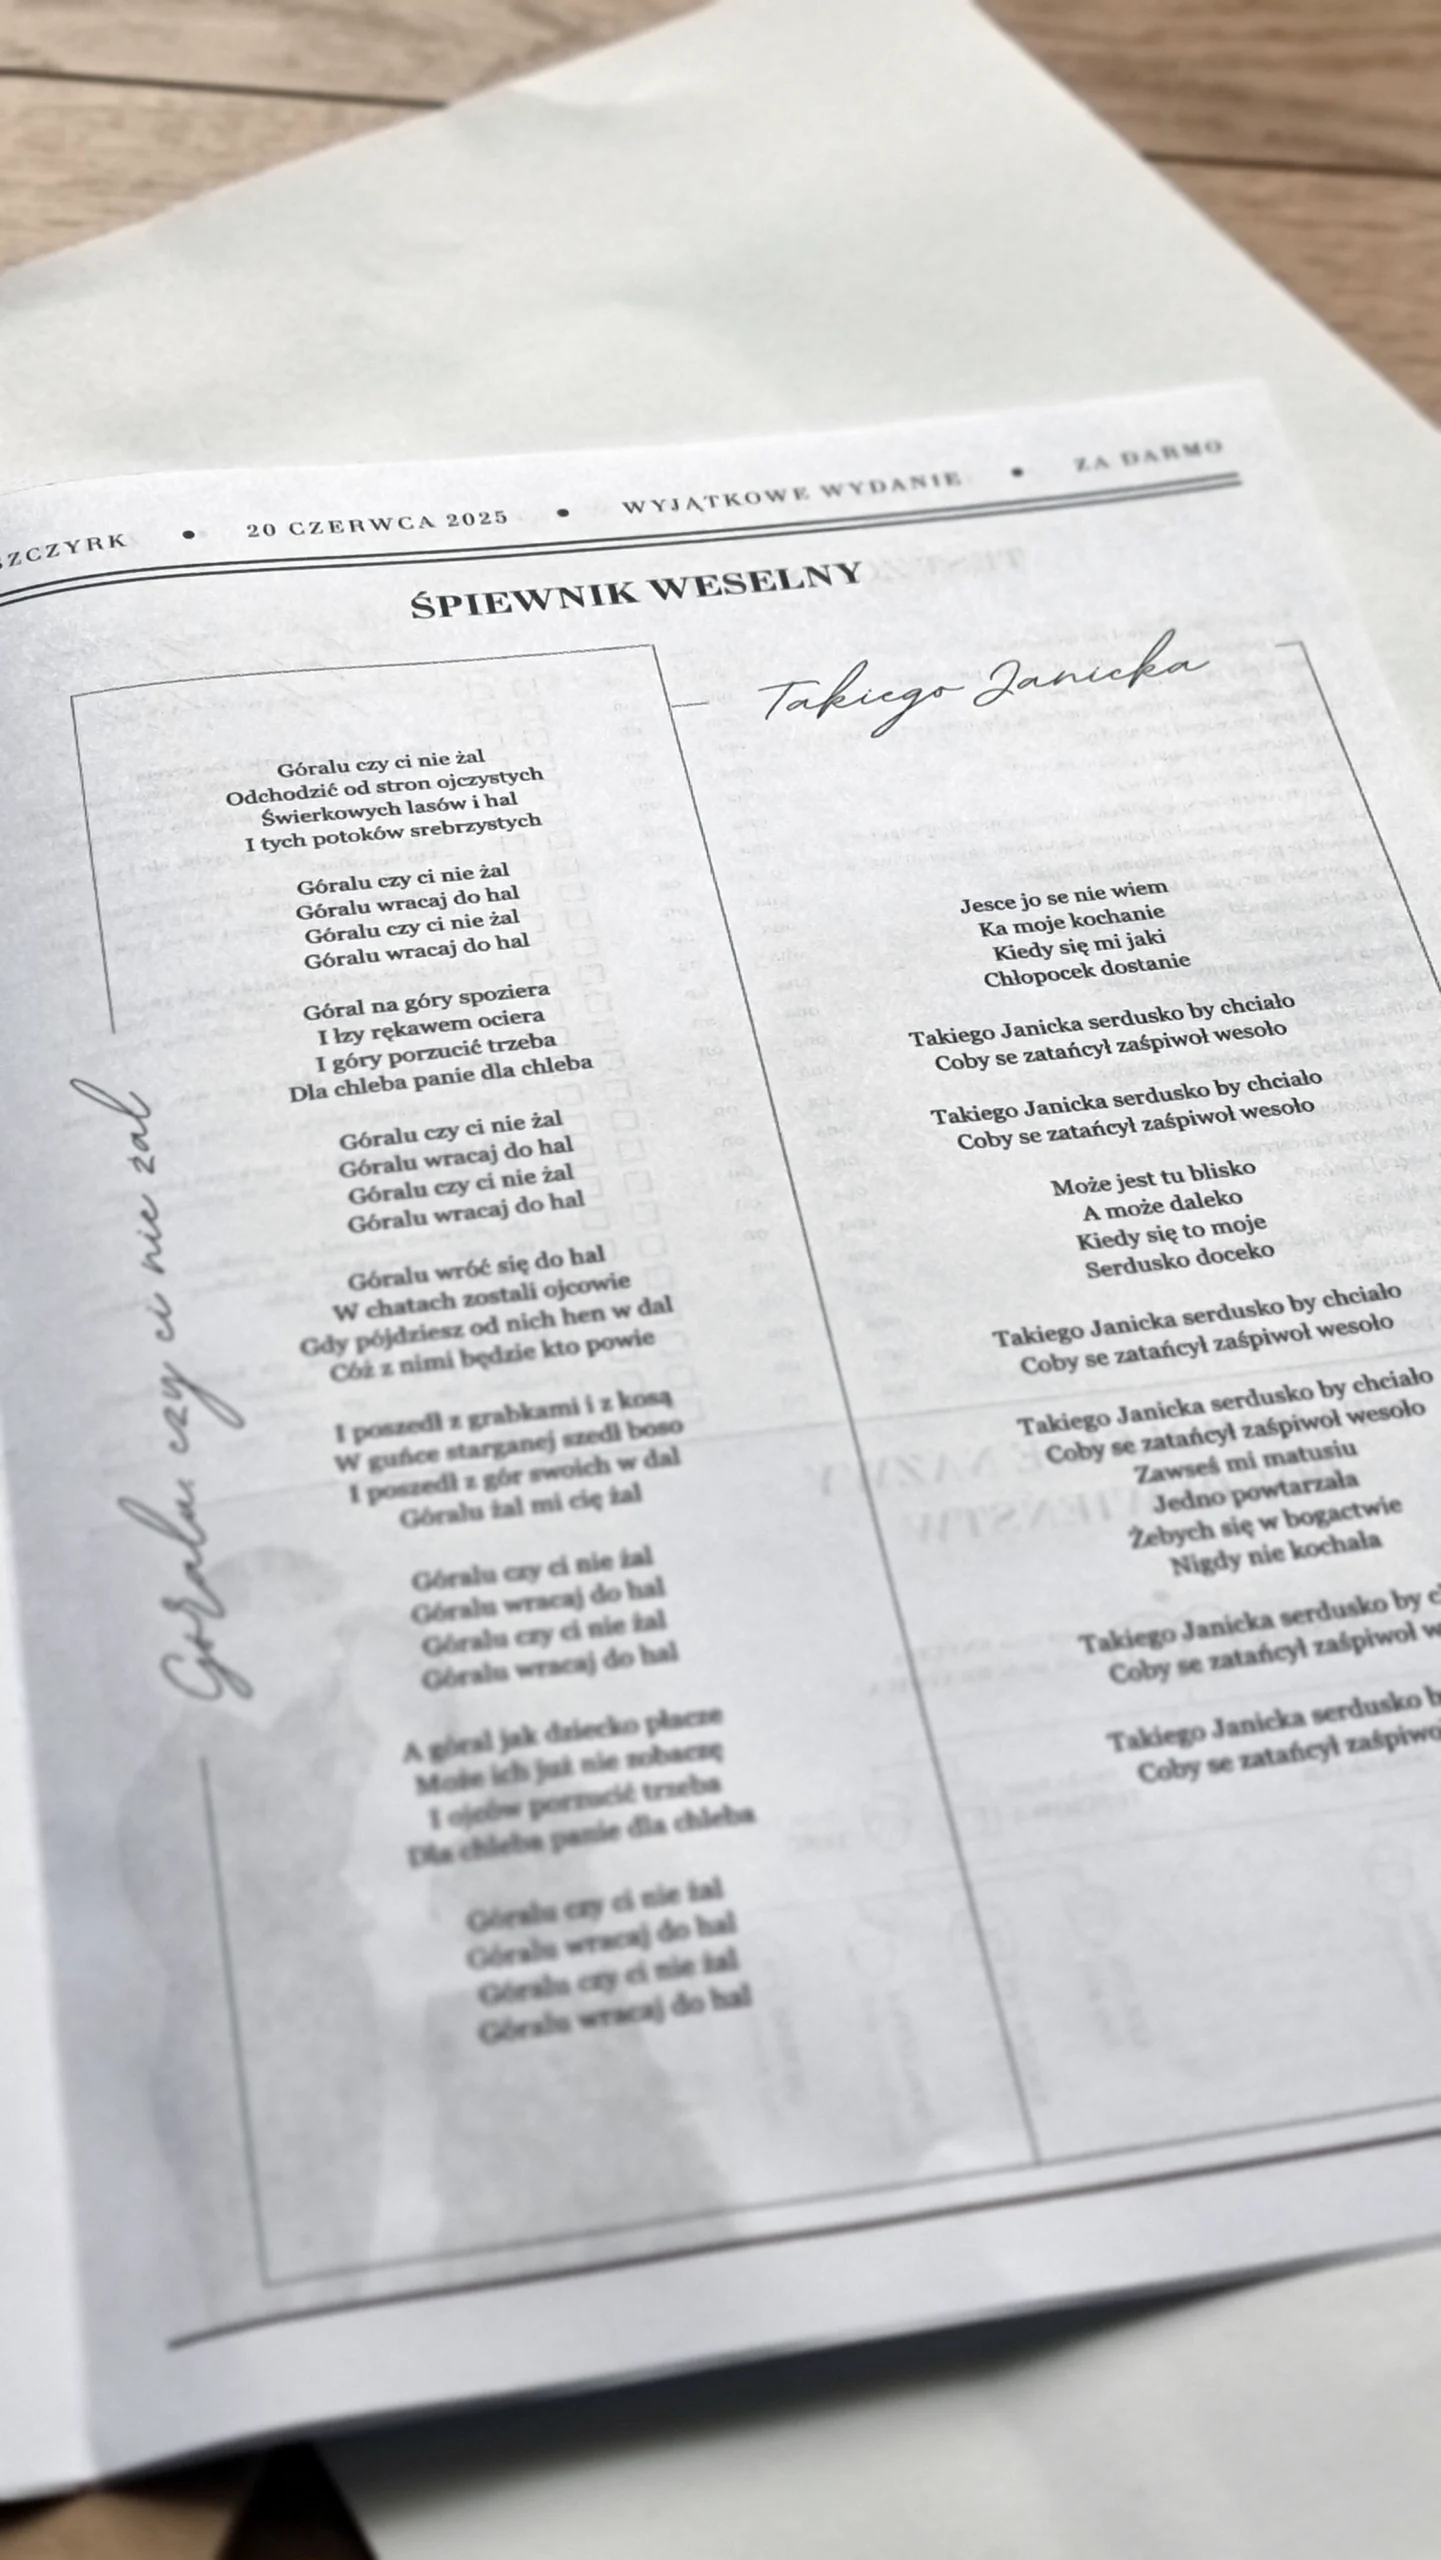 SZCZYRK • 20 CZERWCA 2025 • WYJĄTKOWE WYDANIE • ZA DARMO
ŚPIEWNIK WESELNY
Góralu czy ci nie żal
Góralu czy ci nie żal
Odchodzić od stron ojczystych
Świerkowych lasów i hal
I tych potoków srebrzystych
Góralu czy ci nie żal
Góralu wracaj do hal
Góralu czy ci nie żal
Góralu wracaj do hal
Góral na góry spoziera
I łzy rękawem ociera
I góry porzucić trzeba
Dla chleba panie dla chleba
Góralu czy ci nie żal
Góralu wracaj do hal
Góralu czy ci nie żal
Góralu wracaj do hal
Góralu wróć się do hal
W chatach zostali ojcowie
Gdy pójdziesz od nich hen w dal
Cóż z nimi będzie kto powie
I poszedł z grabkami i z kosą
W guńce starganej szedł boso
I poszedł z gór swoich w dal
Góralu żal mi cię żal
Góralu czy ci nie żal
Góralu wracaj do hal
Góralu czy ci nie żal
Góralu wracaj do hal
A góral jak dziecko płacze
Może ich już nie zobaczę
I ojców porzucić trzeba
Dla chleba panie dla chleba
Góralu czy ci nie żal
Góralu wracaj do hal
Góralu czy ci nie żal
Góralu wracaj do hal
Takiego Janicka
Jesce jo se nie wiem
Ka moje kochanie
Kiedy się mi jaki
Chłopocek dostanie
Takiego Janicka serdusko by chciało
Coby se zatańcył zaśpiwoł wesoło
Takiego Janicka serdusko by chciało
Coby se zatańcył zaśpiwoł wesoło
Może jest tu blisko
A może daleko
Kiedy się to moje
Serdusko doceko
Takiego Janicka serdusko by chciało
Coby se zatańcył zaśpiwoł wesoło
Takiego Janicka serdusko by chciało
Coby se zatańcył zaśpiwoł wesoło
Zawseś mi matusiu
Jedno powtarzała
Żebych się w bogactwie
Nigdy nie kochała
Takiego Janicka serdusko by
Coby se zatańcył zaśpiwoł
Takiego Janicka serdusko
Coby se zatańcył